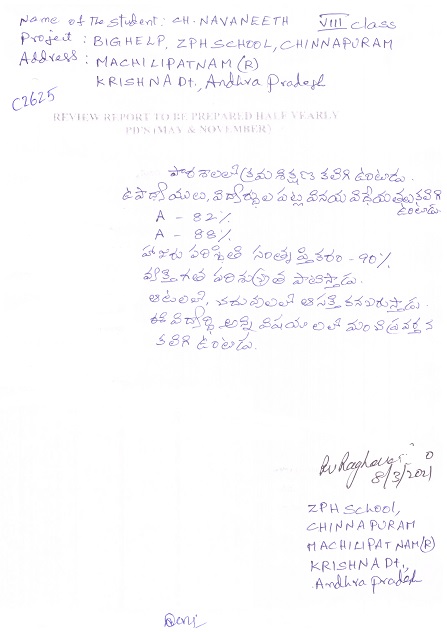 Name of the Student: CH. NAVANEETH VIII class
Project : BIGHELP, ZPH SCHOOL, CHINNAPURAM
Address : MACHILIPATNAM (R)
KRISHNA Dt., Andhra Pradesh
C2625
REVIEW REPORT TO BE PREPARED HALF YEARLY
PD'S (MAY & NOVEMBER)
పాఠశాలలో క్రమశిక్షణ కలిగి ఉంటాడు.
ఉపాధ్యాయులు, విద్యార్థుల పట్ల వినయ విధేయతలు కలిగి
ఉంటాడు.
A - 82%
A - 88%
హాజరు పరిస్థితి సంతృప్తికరం - 90%
వ్యక్తిగత పరిశుభ్రత పాటిస్తాడు.
ఆటలలో, చదువులలో ఆసక్తి కనబరుస్తాడు.
ఈ విద్యార్థి అన్ని విషయాలలో మంచి ప్రవర్తన
కలిగి ఉంటాడు.
8/3/2021
ZPH School,
CHINNAPURAM
MACHILIPATNAM (R)
KRISHNA Dt.,
Andhra Pradesh